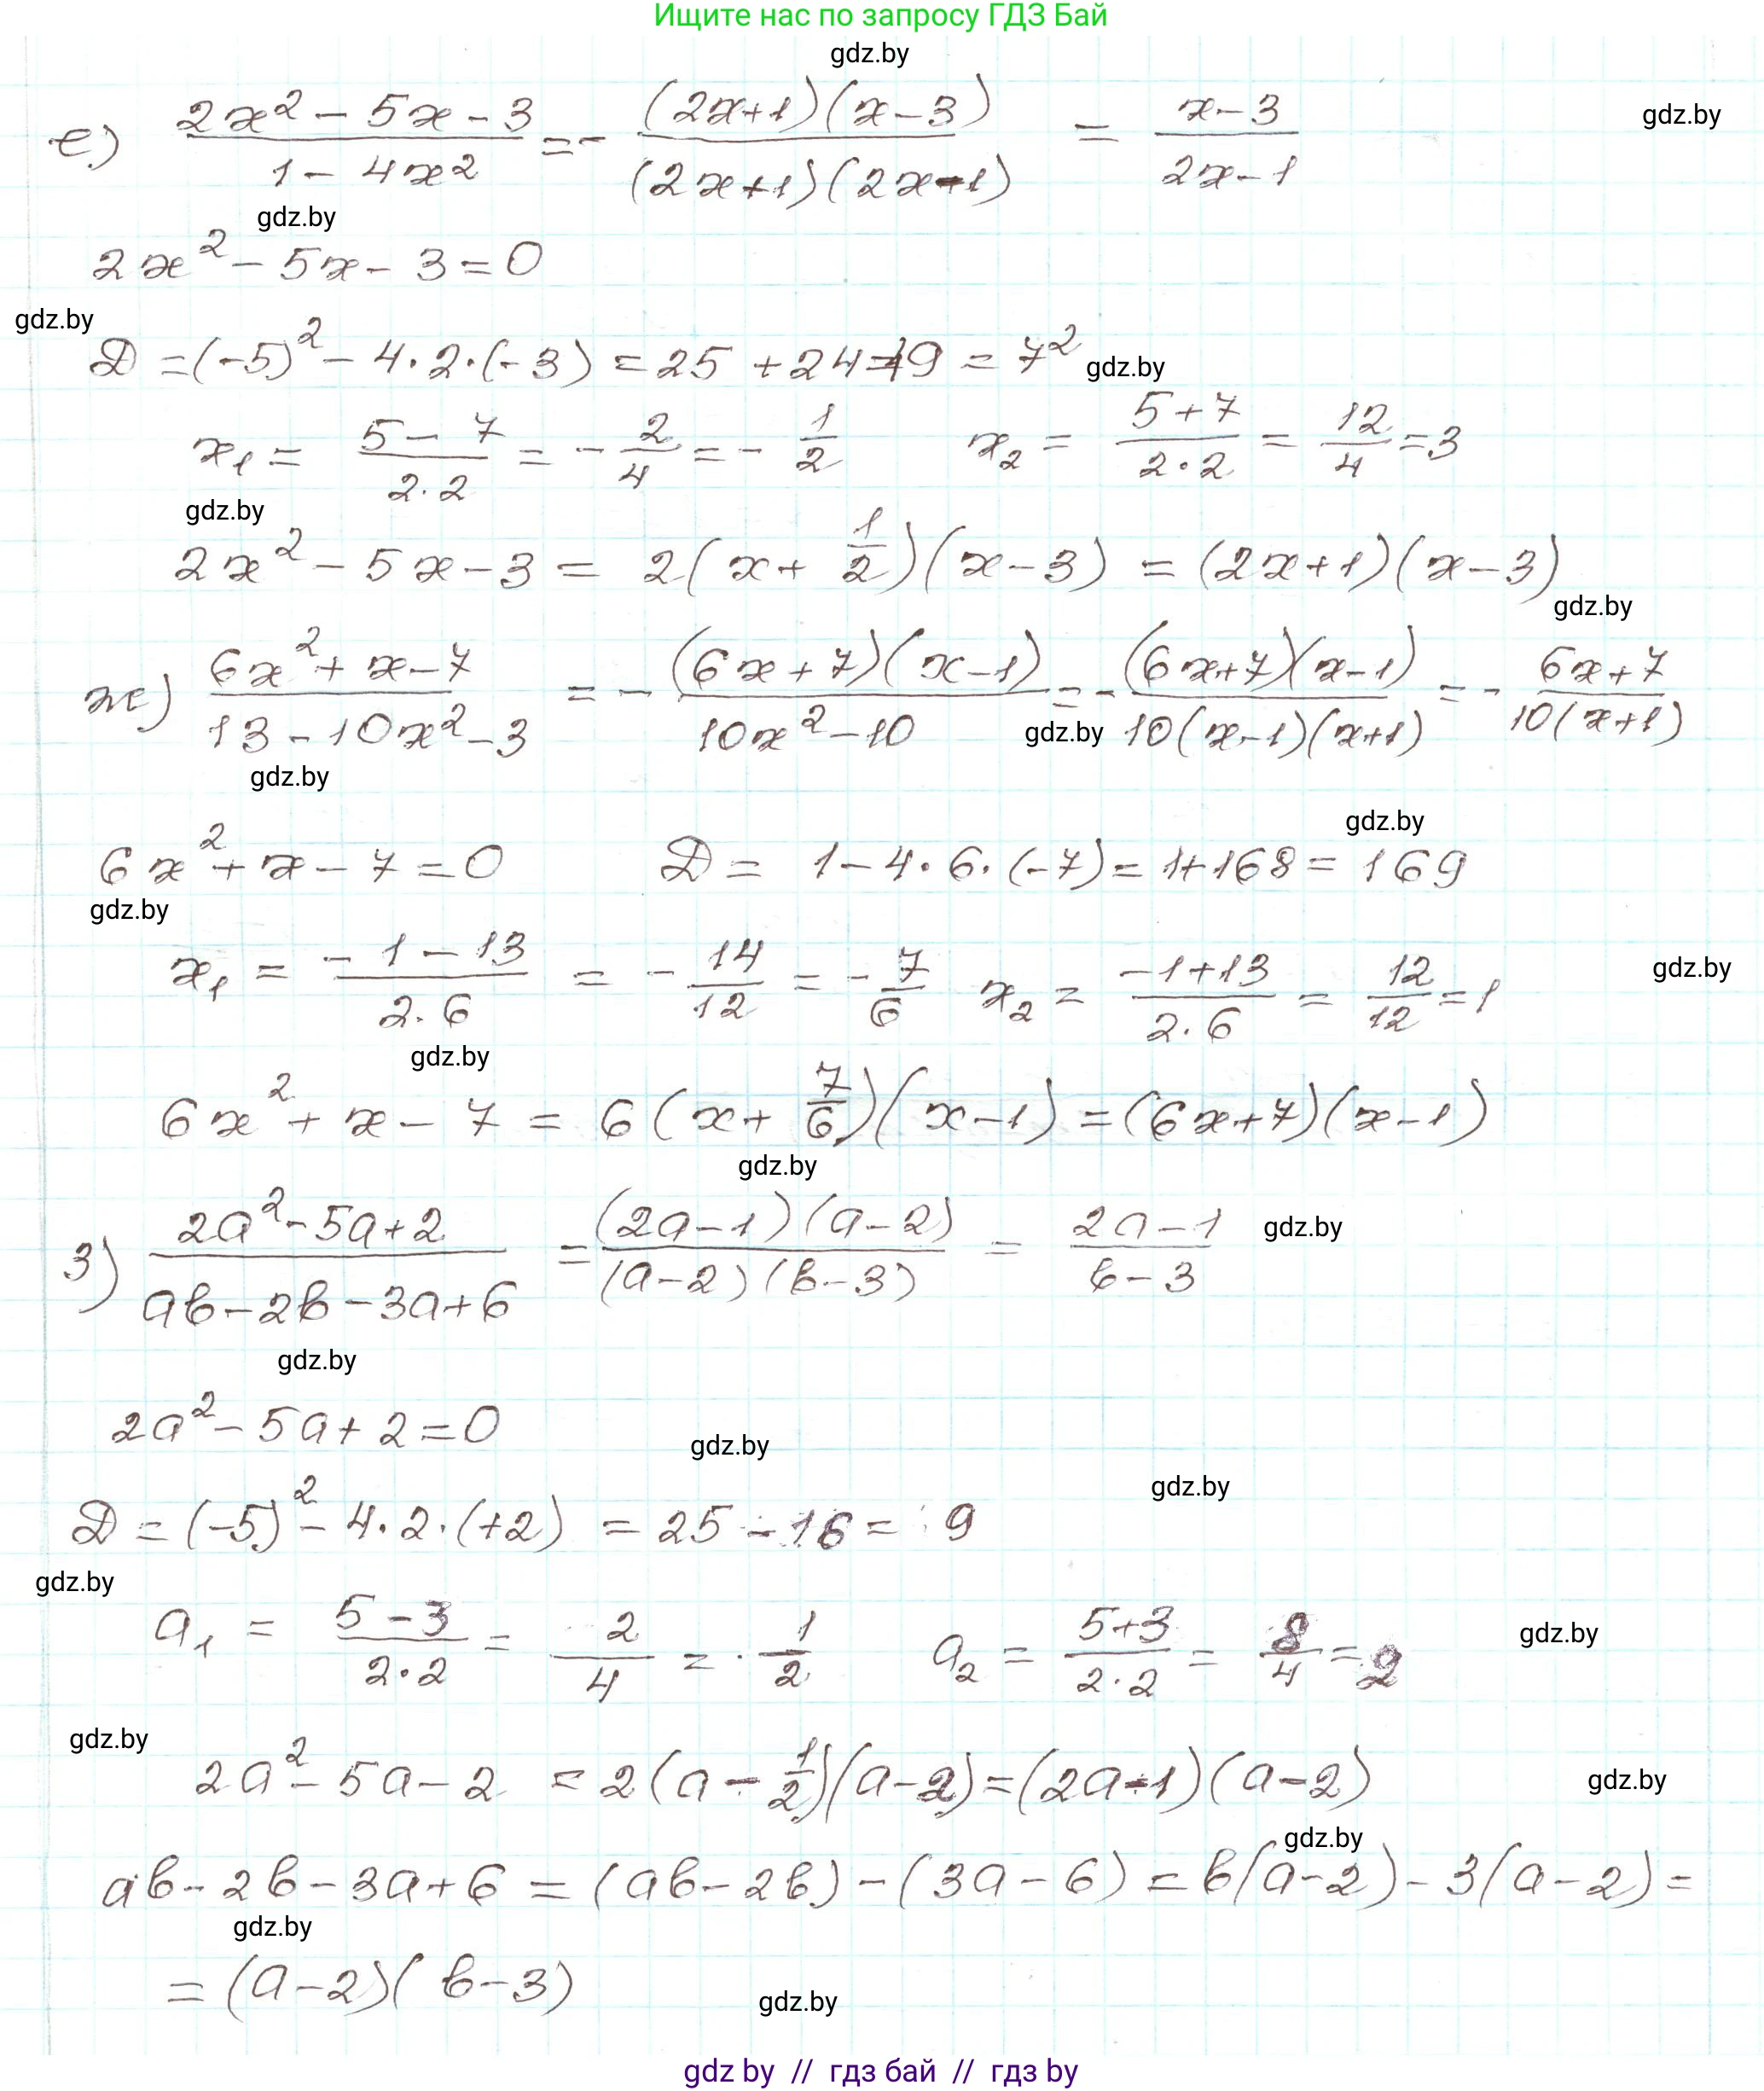 Ищите нас по запросу ГДЗ Бай
gdz.by
е) (2x² - 5x - 3)/(1 - 4x²) = - ((2x+1)(x-3))/((2x+1)(2x-1)) = (x-3)/(2x-1)
gdz.by
gdz.by
2x² - 5x - 3 = 0
gdz.by
D = (-5)² - 4·2·(-3) = 25 + 24 = 49 = 7²
gdz.by
x₁ = (5 - 7)/(2·2) = - 2/4 = - 1/2 x₂ = (5+7)/(2·2) = 12/4 = 3
gdz.by
2x² - 5x - 3 = 2(x + 1/2)(x - 3) = (2x+1)(x-3)
gdz.by
ж) (6x² + x - 7)/(13 - 10x² - 3) = - ((6x+7)(x-1))/(10x² - 10) = - ((6x+7)(x-1))/(10(x-1)(x+1)) = - (6x+7)/(10(x+1))
gdz.by
gdz.by
gdz.by
6x² + x - 7 = 0 D = 1 - 4·6·(-7) = 1+168 = 169
gdz.by
x₁ = (-1 - 13)/(2·6) = - 14/12 = - 7/6 x₂ = (-1+13)/(2·6) = 12/12 = 1
gdz.by
gdz.by
6x² + x - 7 = 6(x + 7/6)(x-1) = (6x+7)(x-1)
gdz.by
з) (2a² - 5a + 2)/(ab - 2b - 3a + 6) = ((2a-1)(a-2))/((a-2)(b-3)) = (2a-1)/(b-3)
gdz.by
gdz.by
2a² - 5a + 2 = 0
gdz.by
gdz.by
D = (-5)² - 4·2·(+2) = 25 - 16 = 9
gdz.by
a₁ = (5 - 3)/(2·2) = 2/4 = 1/2 a₂ = (5+3)/(2·2) = 8/4 = 2
gdz.by
gdz.by
2a² - 5a - 2 = 2(a - 1/2)(a-2) = (2a-1)(a-2)
gdz.by
gdz.by
ab - 2b - 3a + 6 = (ab - 2b) - (3a - 6) = b(a-2) - 3(a-2) =
gdz.by
= (a-2)(b-3)
gdz.by
gdz by // гдз бай // гдз by